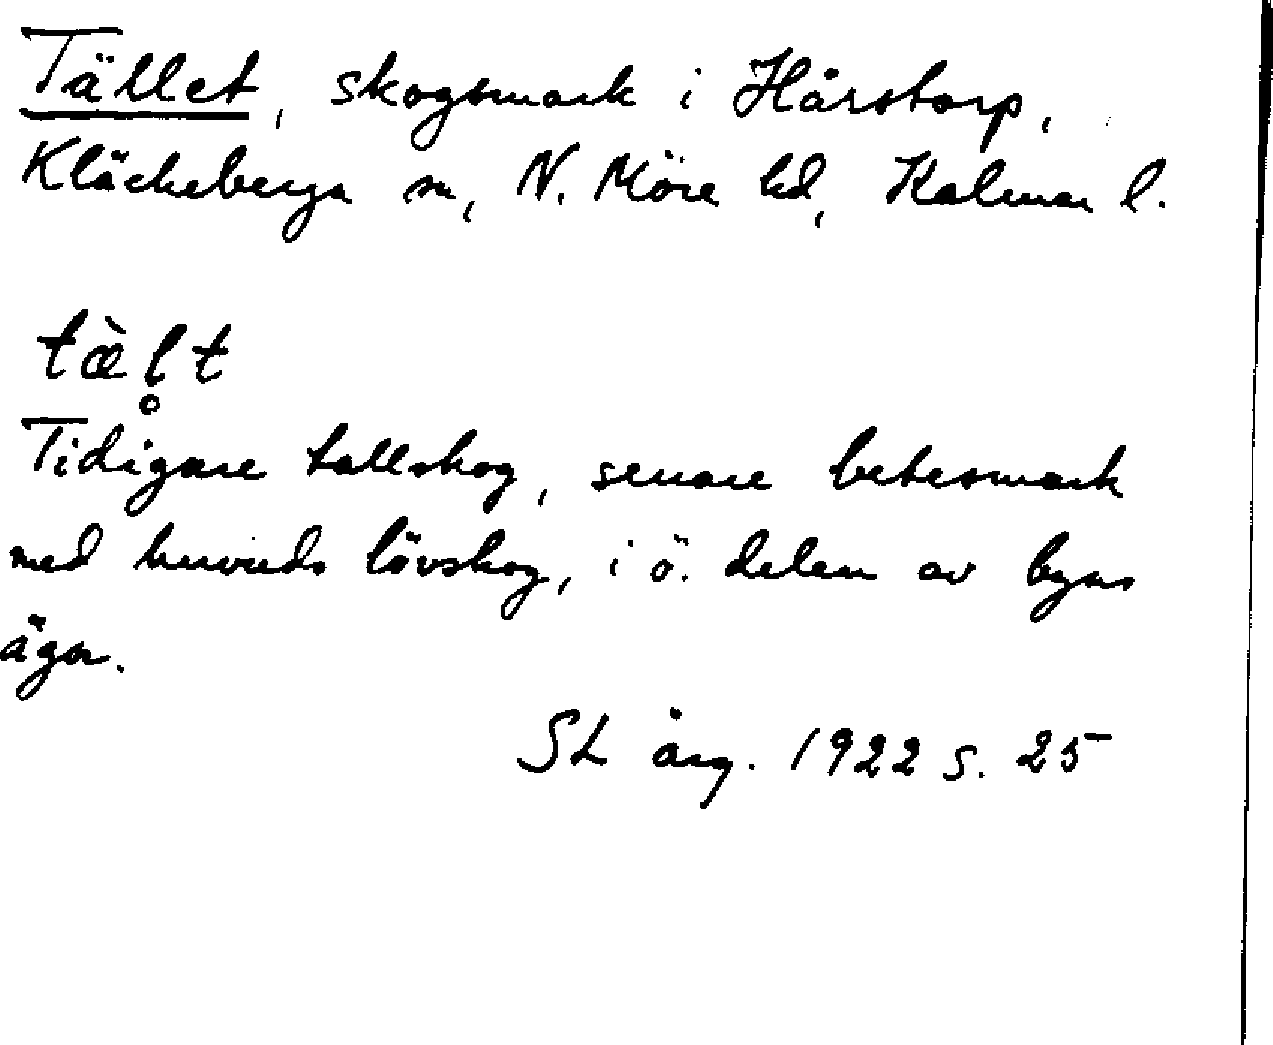 Tället, skogsmark i Hårstorp,
Kläckeberga sn, N. Möre hd, Kalmar l.
tæ̀l̥t
Tidigare tallskog, senare betesmark
med huvuds lövskog, i ö. delen av byns
ägor.
SL årg. 1922 s. 25